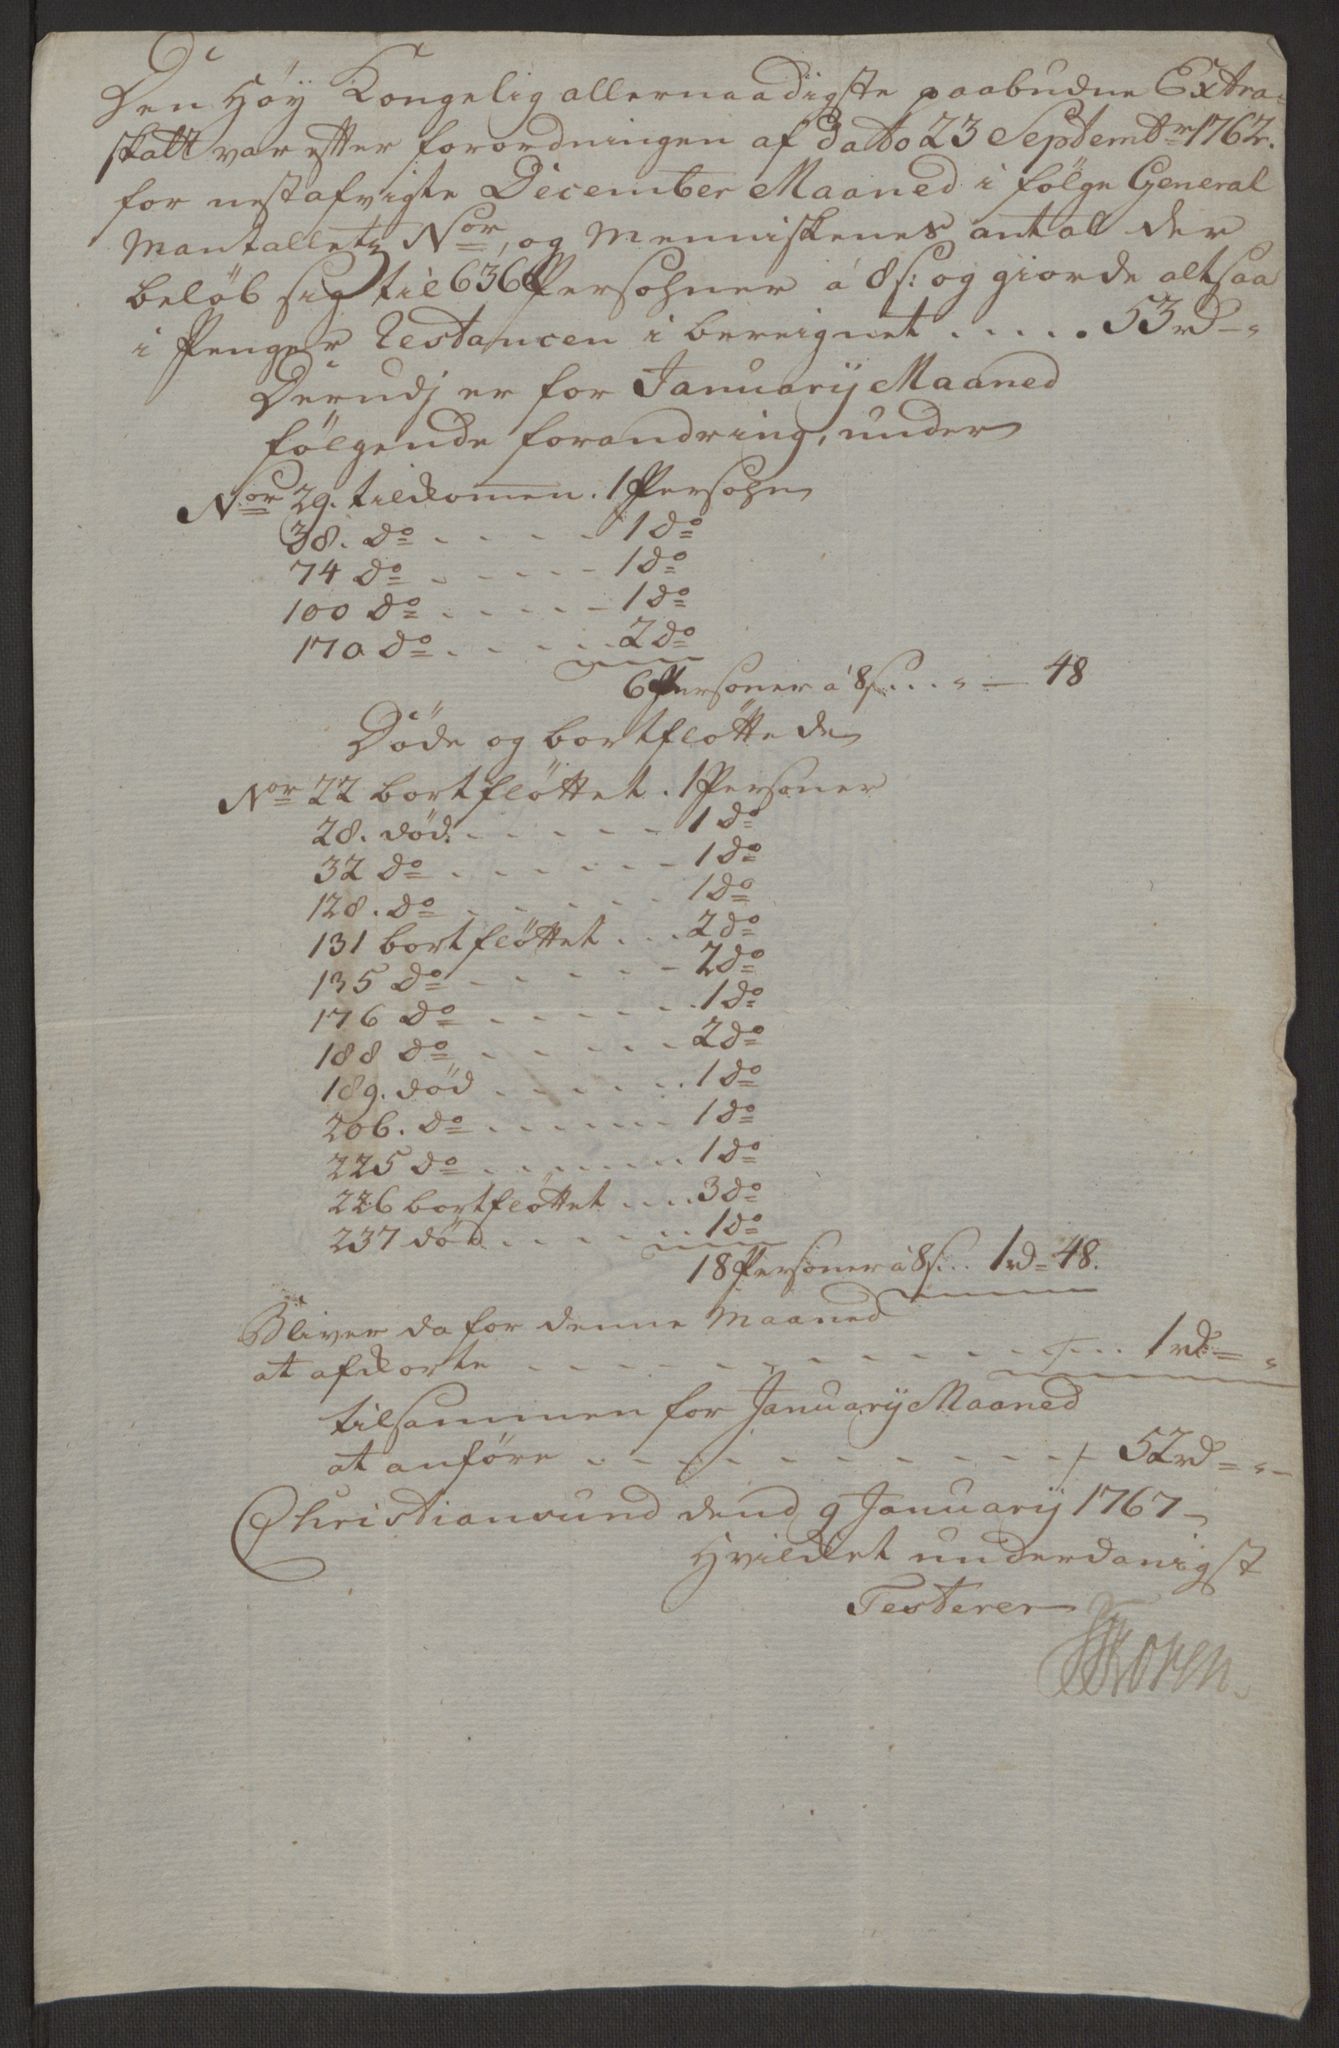 Den Høÿ Kongelig allernaadigste paabudne Extra-
skatt var efter forordningen af dato 23 Septembr 1762.
for nestafvigte December Maaned i følge General
Mantallets Nor, og Menniskenes antal der
beløb sig til 636 Persohner á 8s: og giorde altsaa
i Penger Restancen i bereignet ..... 53rd - "
Derudj er for Januarij Maaned
følgende forandring, under
Nor 29. tilkomen. 1 Persohn
38. do .... 1 do
74 do .... 1 do
100 do .... 1 do
170 do .... 2 do
6 Personer á 8s... " - 48
Døde og bortfløttede
Nor 22 bortfløttet. 1 Personer
28. død: .... 1 do
32 do .... 1 do
128. do .... 1 do
131 bortfløttet ... 2 do
135 do .... 2 do
176 do .... 1 do
188 do .... 2 do
189. død .... 1 do
206. do .... 1 do
225 do .... 1 do
226 bortfløttet .... 3 do
237 død .... 1 do
18 Personer á 8s... 1rd = 48.
Bliver da for denne Maaned
at afkorte .... 1rd = "
tilsammen for Januarij Maaned
at anføre .... 52rd = " -
Christiansund dend 9 Januarij 1767 -
Hvilket underdanigst
Testerer
Koren.